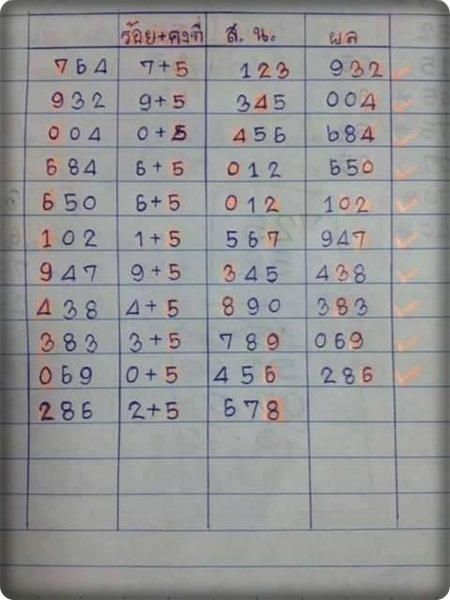 ร้อย+คงที่ ส. น. ผล
764 7+5 123 932
932 9+5 345 004
004 0+5 456 684
684 6+5 012 650
650 6+5 012 102
102 1+5 567 947
947 9+5 345 438
438 4+5 890 383
383 3+5 789 069
069 0+5 456 286
286 2+5 678